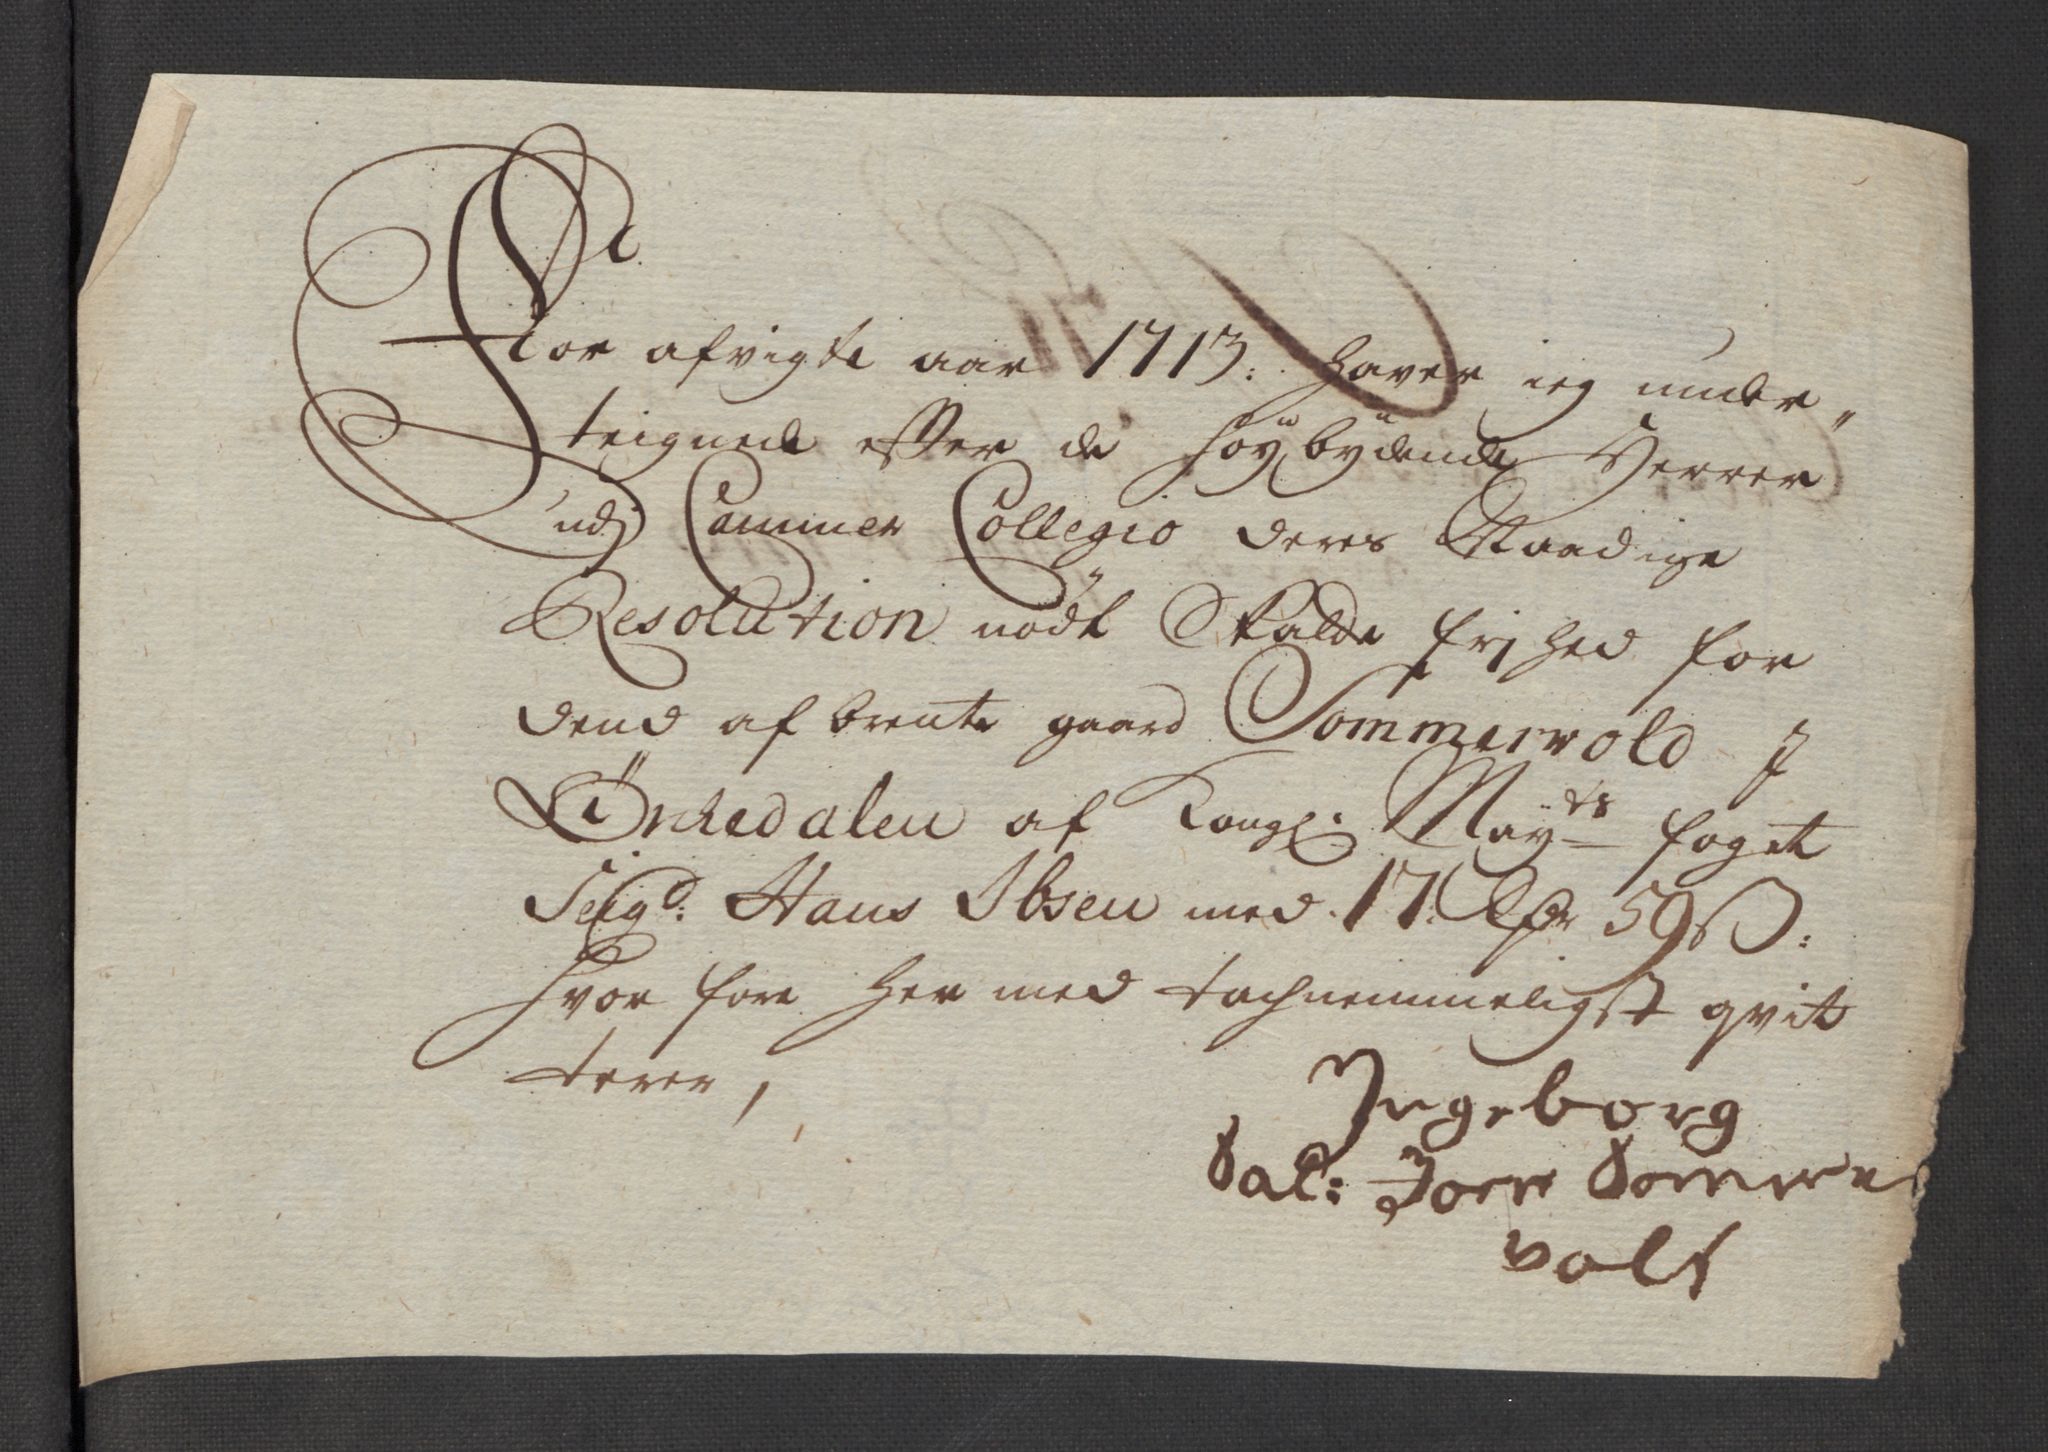 For afvigte aar 1713: haver ieg under=
teignede effter de høÿbÿdende Herrer
udj Cammer Collegio deres Naadige
Resolution nødt Skatte frjhed for
dend af brente gaard Sommervold J
Ørckedalen af Kongl: Mayts foget
Seigr: Hans Ibsen med 17 Rdr 59 s:
hvor fore her med tachnemmeligst qvit
terer,
Ingeborg
Sal: Joen Somme
volt